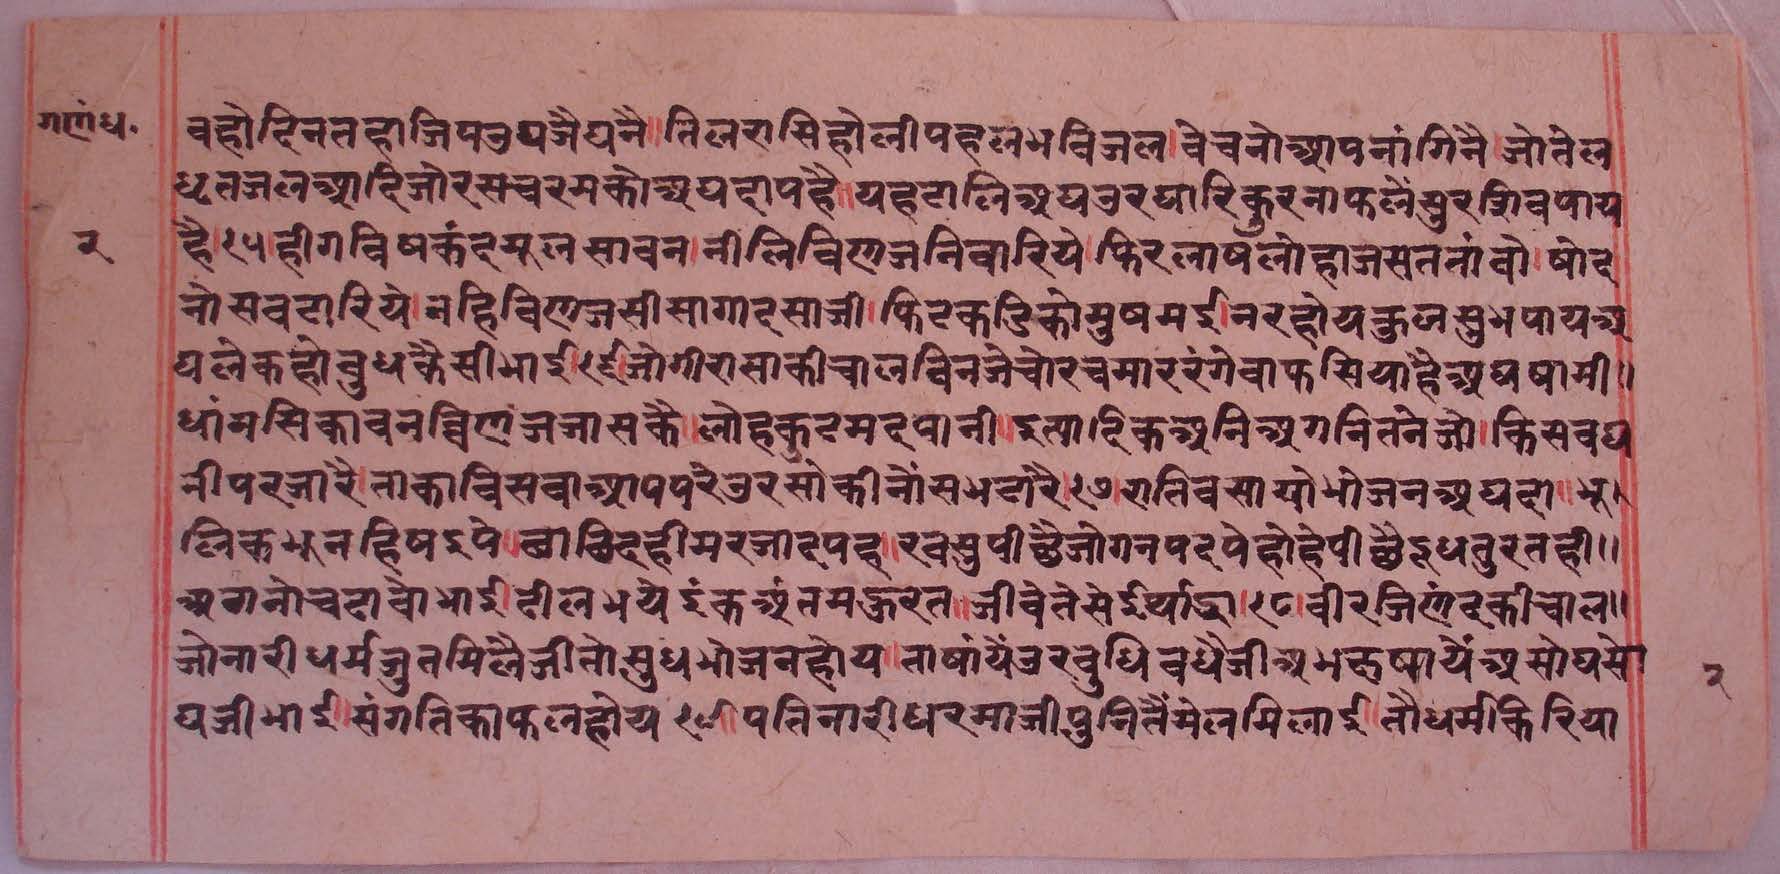 गणंध॰
वहोदिनतहाजिपउपजैघनै॥तिलरासिहोलीपहलभविजल।वेचनोआपनांगिनै।जोतेल
धृतजलआदिजोरसचरमकोअघदापहै॥यहटालिअघउरधारिकुरनाफलैसुरशिवपाय
२
है।१५।हीगविषकंदमूलसावन।नीलिविणजनिवारिये।फिरलाषलोहाजसतताबो।षोद
नोसबटारिये।नहिविणजसीसागादसाजी।फिटकडिकोमुषमई।नरहोयकुजसुभपायअ
घलेकहोबुधकैसीभाई।१६।जोगीरासाकीचालविनजेचोरचमाररंगेवाफसियाहैअघषामी॥
धांनसिकाबनविणंजजासकै।लोहकुटमदषानी॥इत्यादिकअनिअगनितनेजो।किसबघ
नीपरजारै।ताकाविसवाआपपरैउरसोकीनौंसभटारै।१७।रातिबसायोभोजनअघदा॥भू।
लिकभूनहिषइपे॥बाछिदहीमरजादपह॥रवसुपीछैजोगनषटपेहोहेपीछैदूधतुरतही॥
अगनोचटावोभाई।टीलभयेइंकअंतमऊरत॥जीवेतेसेईर्याद्धा।१८।वीरजिणंदकीचाल॥
जोनारीधर्मजुतमिलैजीतोसुधभोजनहोय॥ताषांयेंउरबुधिवधैजीअभक्षषायेंअसोघसो
२
घजीभाई॥संगतिकाफलहोय१९॥पतिनारीधरमाजीपुनितैंमेलमिलाई।तौधर्मकिरिया